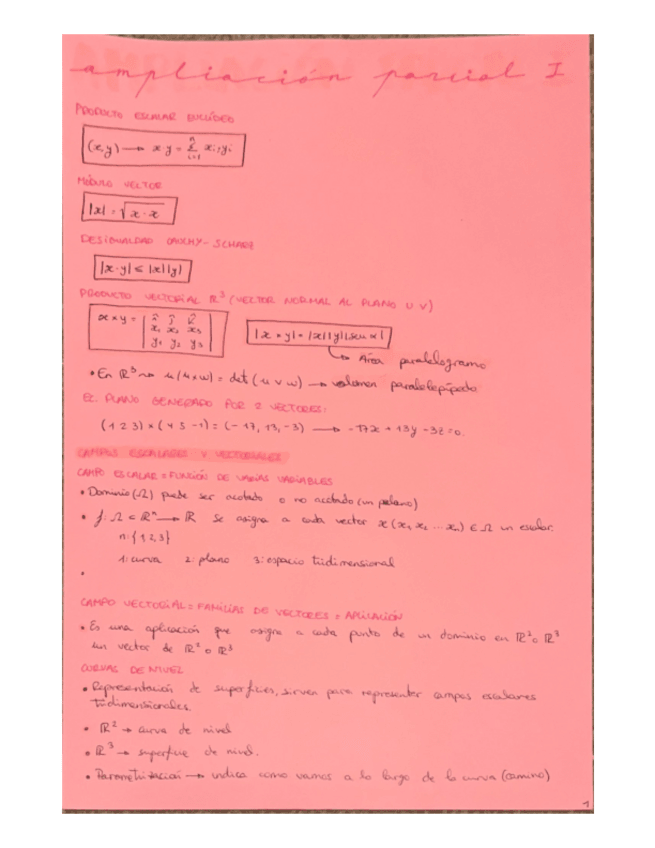 ampliación parcial I
PRODUCTO ESCALAR EUCLÍDEO
(x,y) → x y = Σ xi,yi
n
i=1
MÓDULO VECTOR
|x| = √x·x
DESIGUALDAD CAUCHY-SCHARZ
|x·y| ≤ |x||y|
PRODUCTO VECTORIAL ℝ³ (VECTOR NORMAL AL PLANO U V)
x × y = | î ĵ k̂ |
x₁ x₂ x₃
y₁ y₂ y₃
|x × y| = |x||y||sen α|
↳ Área paralelogramo
• En ℝ³ → u(v×w) = det (u v w) → volumen paralelepípedo
EL PLANO GENERADO POR 2 VECTORES:
(1 2 3) × (4 5 -1) = (-17, 13, -3) → -17x + 13y - 3z = 0.
CAMPOS ESCALARES Y VECTORIALES
CAMPO ESCALAR = FUNCIÓN DE VARIAS VARIABLES
• Dominio (Ω) puede ser acotado o no acotado (un plano)
• f: Ω ⊂ ℝⁿ → ℝ Se asigna a cada vector x (x₁ x₂ ... xₙ) ∈ Ω un escalar.
n: {1 2 3}
1: curva 2: plano 3: espacio tridimensional
•
CAMPO VECTORIAL = FAMILIAS DE VECTORES = APLICACIÓN
• Es una aplicación que asigna a cada punto de un dominio en ℝ² o ℝ³
un vector de ℝ² o ℝ³
CURVAS DE NIVEL
• Representación de superficies, sirven para representar campos escalares
tridimensionales.
• ℝ² → curva de nivel
• ℝ³ → superficie de nivel.
• Parametrización → indica como vamos a lo largo de la curva (camino)
1